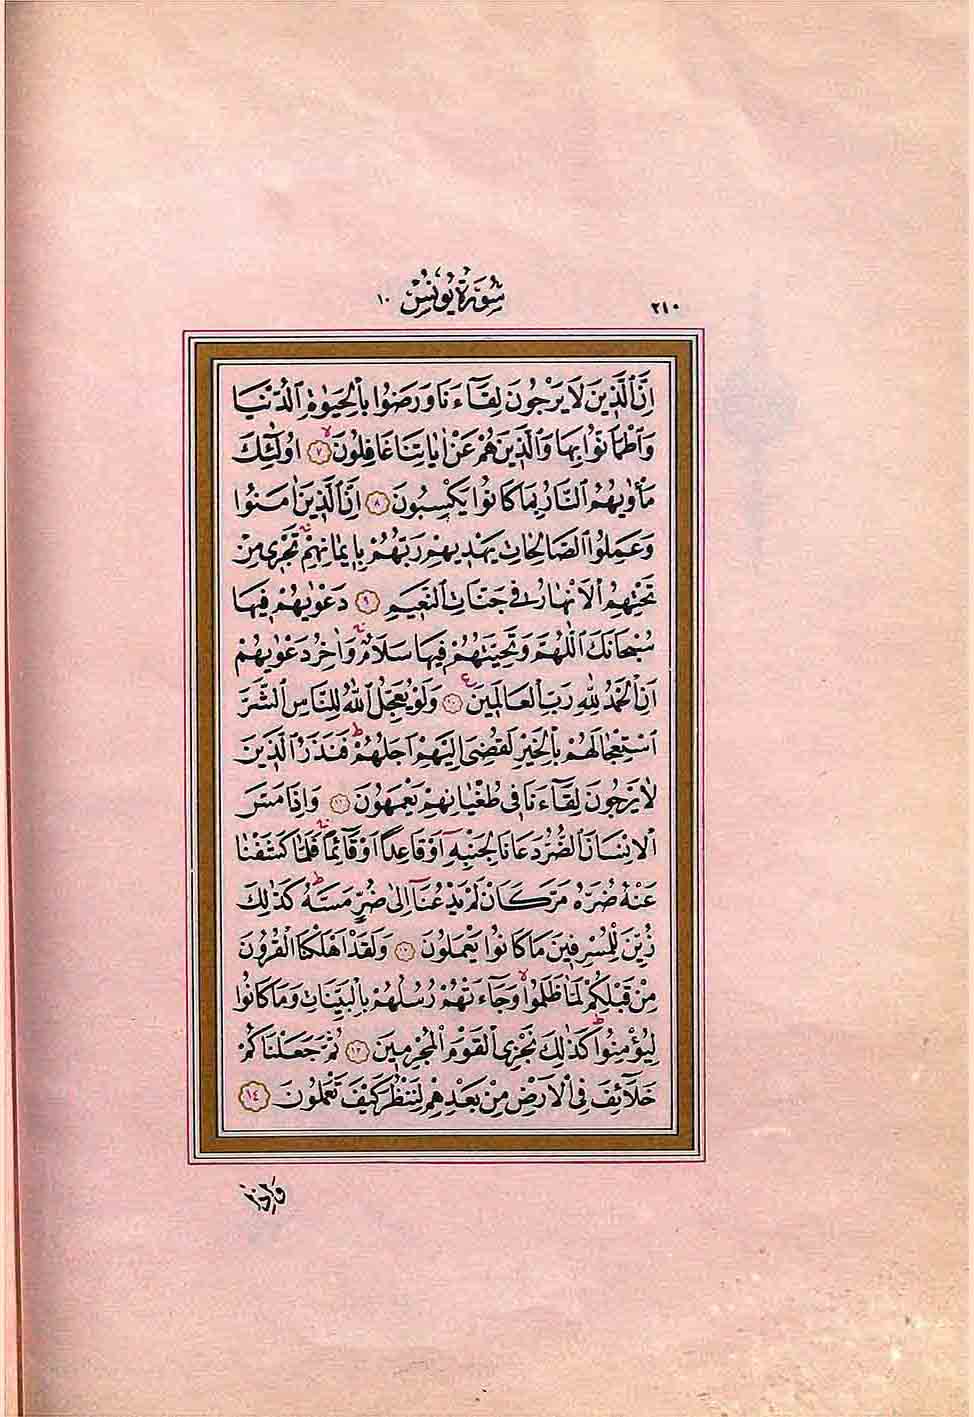 ٢١٠
سُورَةُ يُونُسَ ١٠
اِنَّ الَّذ۪ينَ لَا يَرْجُونَ لِقَٓاءَنَا وَرَضُوا بِالْحَيٰوةِ الدُّنْيَا
وَاطْمَاَنُّوا بِهَا وَالَّذ۪ينَ هُمْ عَنْ اٰيَاتِنَا غَافِلُونَۙ ﴿٧﴾ اُو۬لٰٓئِكَ
مَأْوٰيهُمُ النَّارُ بِمَا كَانُوا يَكْسِبُونَ ﴿٨﴾ اِنَّ الَّذ۪ينَ اٰمَنُوا
وَعَمِلُوا الصَّالِحَاتِ يَهْد۪يهِمْ رَبُّهُمْ بِا۪يمَانِهِمْۚ تَجْر۪ي مِنْ
تَحْتِهِمُ الْاَنْهَارُ ف۪ي جَنَّاتِ النَّع۪يمِ ﴿٩﴾ دَعْوٰيهُمْ ف۪يهَا
سُبْحَانَكَ اللّٰهُمَّ وَتَحِيَّتُهُمْ ف۪يهَا سَلَامٌۚ وَاٰخِرُ دَعْوٰيهُمْ
اَنِ الْحَمْدُ لِلّٰهِ رَبِّ الْعَالَم۪ينَ۟ ع ﴿١٠﴾ وَلَوْ يُعَجِّلُ اللّٰهُ لِلنَّاسِ الشَّرَّ
اسْتِعْجَالَهُمْ بِالْخَيْرِ لَقُضِيَ اِلَيْهِمْ اَجَلُهُمْۜ فَنَذَرُ الَّذ۪ينَ
لَا يَرْجُونَ لِقَٓاءَنَا ف۪ي طُغْيَانِهِمْ يَعْمَهُونَ ﴿١١﴾ وَاِذَا مَسَّ
الْاِنْسَانَ الضُّرُّ دَعَانَا لِجَنْبِه۪ٓ اَوْ قَاعِدًا اَوْ قَٓائِمًاۚ فَلَمَّا كَشَفْنَا
عَنْهُ ضُرَّهُ مَرَّ كَاَنْ لَمْ يَدْعُنَٓا اِلٰى ضُرٍّ مَسَّهُۜ كَذٰلِكَ
زُيِّنَ لِلْمُسْرِف۪ينَ مَا كَانُوا يَعْمَلُونَ ﴿١٢﴾ وَلَقَدْ اَهْلَكْنَا الْقُرُونَ
مِنْ قَبْلِكُمْ لَمَّا ظَلَمُواۙ وَجَٓاءَتْهُمْ رُسُلُهُمْ بِالْبَيِّنَاتِ وَمَا كَانُوا
لِيُؤْمِنُواۜ كَذٰلِكَ نَجْزِي الْقَوْمَ الْمُجْرِم۪ينَ ﴿١٣﴾ ثُمَّ جَعَلْنَاكُمْ
خَلَٓائِفَ فِي الْاَرْضِ مِنْ بَعْدِهِمْ لِنَنْظُرَ كَيْفَ تَعْمَلُونَ ﴿١٤﴾
وَاِذَا